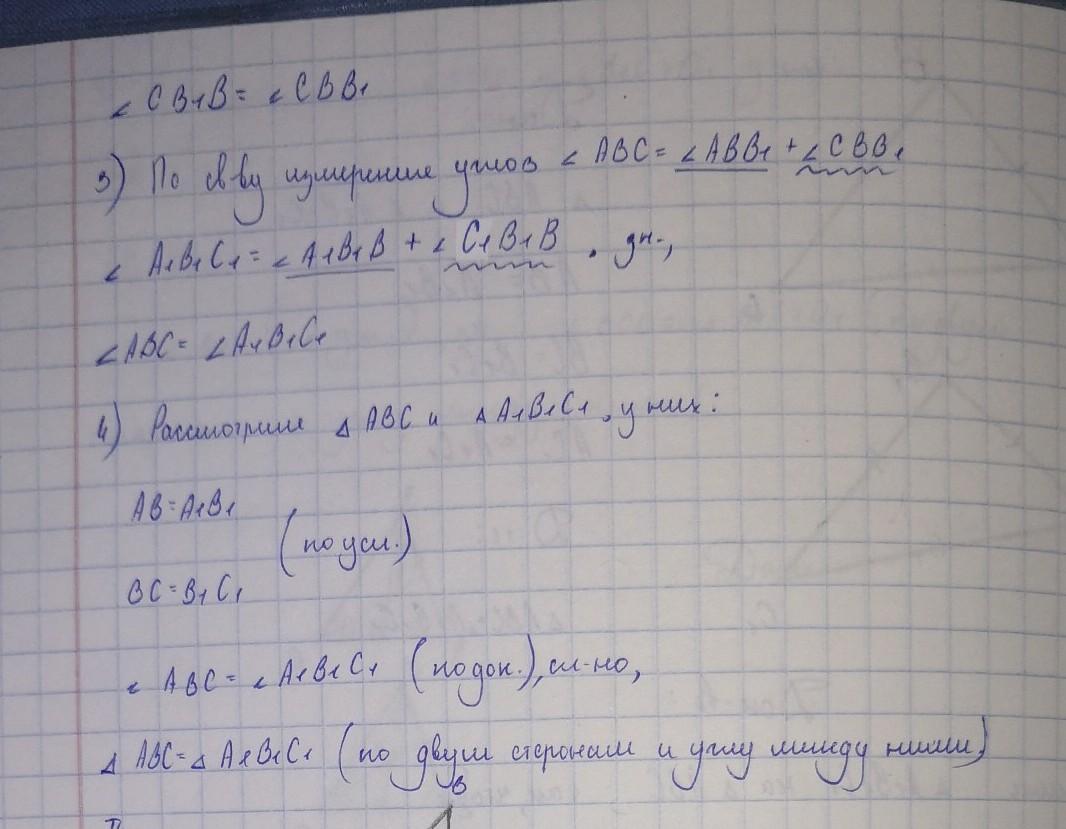 ∠ CB₁B = ∠ CBB₁
3) По св-ву измерение углов ∠ ABC = ∠ABB₁ + ∠CBB₁
∠ A₁B₁C₁ = ∠ A₁B₁B + ∠ C₁B₁B ,
∠ABC = ∠A₁B₁C₁
4) Рассмотрим Δ ABC и Δ A₁B₁C₁, у них:
AB = A₁B₁
(по усл.)
BC = B₁C₁
∠ ABC = ∠ A₁B₁C₁ (по док.), сл-но,
Δ ABC = Δ A₁B₁C₁ (по двум сторонам и углу между ними)
B